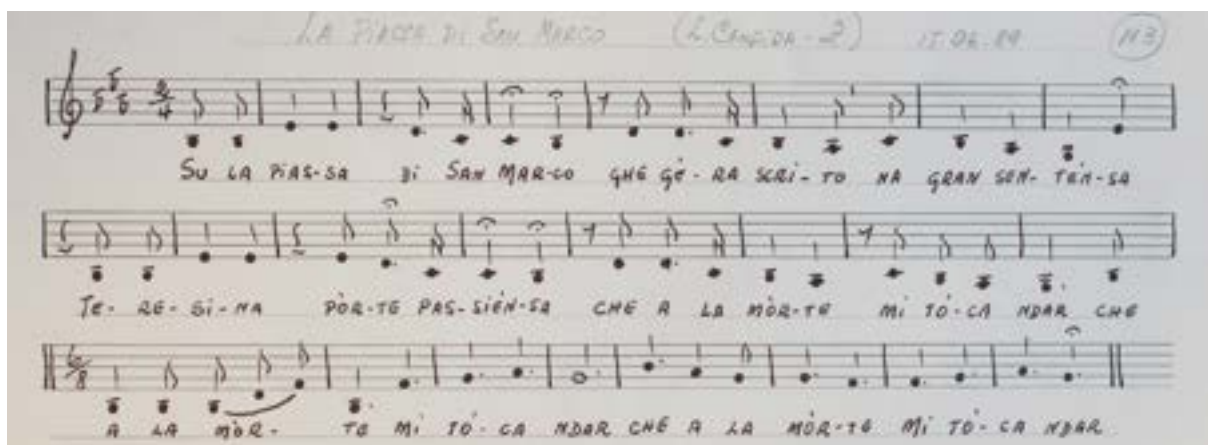 LA PIASSA DI SAN MARCO (L. CANDIDA - 2) 15.06.89 N3
2/4
SU LA PIAS-SA DI SAN MAR-CO GHE GÈ-RA SCRI-TO NA GRAN SEN-TÈN-SA
TE-RE-SI-NA PÒR-TE PAS-SIÈN-SA CHE A LA MÒR-TE MI TÓ-CA NDAR CHE
6/8
A LA MÒR-TE MI TÓ-CA NDAR CHE A LA MÒR-TE MI TÓ-CA NDAR